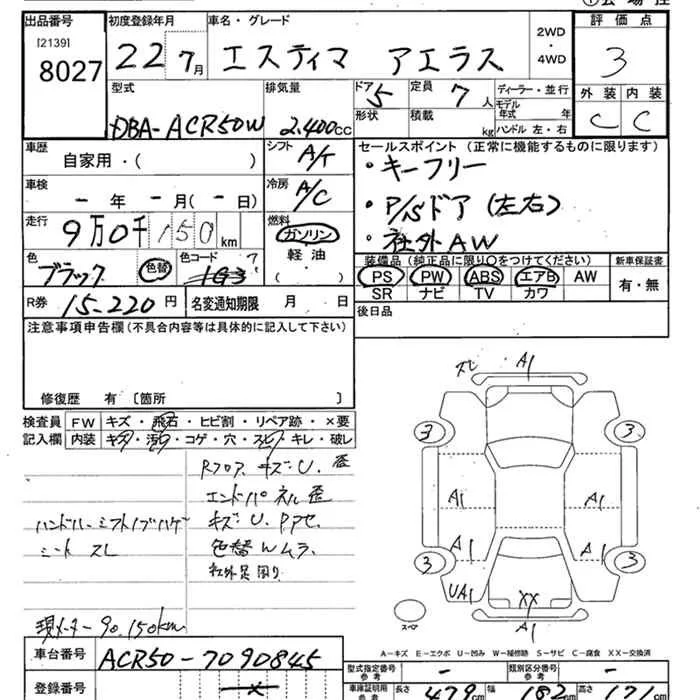 出品番号
[2139]
8027
初度登録年月
22 7月
車名・グレード
エスティマ アエラス
2WD
・
4WD
評価点
3
外装 内装
C C
型式
DBA-ACR50W
排気量
2.400cc
ドア 5
形状
定員 7 人
積載 kg
ディーラー・並行
モデル年式 年
ハンドル 左・右
車歴
自家用・( )
シフト A/T
車検
- 年 - 月 ( - 日)
冷房 A/C
走行
9万0千150km
燃料
ガソリン
軽油
( )
色
ブラック
色替
色コード
1G3
R券 15-220円
名変通知期限 月 日
セールスポイント (正常に機能するものに限ります)
・キーフリー
・P/Sドア (左右)
・社外AW
装備品 (純正品に限り○をつけてください)
PS PW ABS エアB AW
SR ナビ TV カワ
新車保証書
有・無
後日品
注意事項申告欄 (不具合内容等は具体的に記入して下さい)
修復歴 有 〔箇所
検査員記入欄
FW キズ・飛石・ヒビ割・リペア跡・×要
内装 キズ・汚れ・コゲ・穴・スレ・キレ・破レ
Rフロア、キズ・U、歪
エンドパネル歪
キズ・U、PPセ、
色替Wムラ、
社外足回り
ハンドル・シフトノブハゲ
シート スレ
現メーター 90,150km
A1
3 3
A1 A1
A1 A1
3 3
UA1
XX
A1
スペア
A-キズ E-エクボ U-凹み W-補修跡 S-サビ C-腐食 XX-交換済
車台番号
ACR50-7090845
登録番号
型式指定番号 参考 -
類別区分番号 参考 -
車庫証明用 参考
長さ 479cm
幅 182cm
高さ